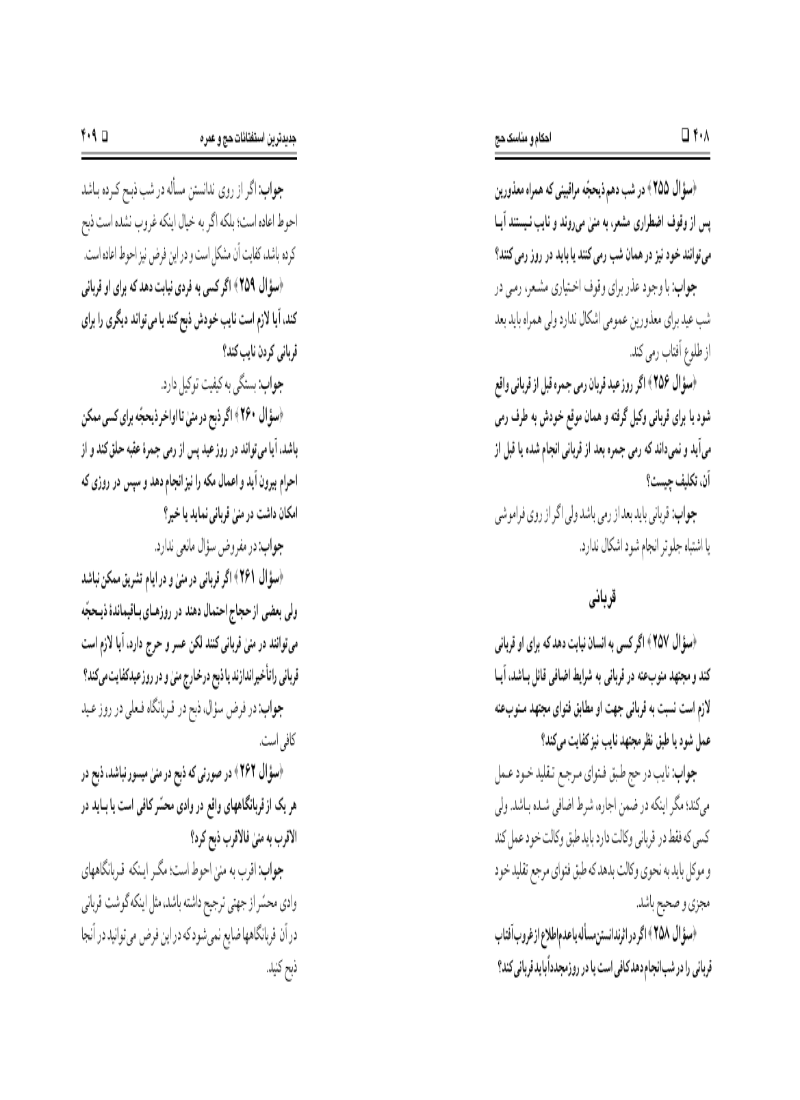 ۴۰۸ ❑ احکام و مناسک حج
﴿سؤال ۲۵۵﴾ در شب دهم ذیحجّه مراقبینی که همراه معذورین
پس از وقوف اضطراری مشعر، به منیٰ می‌روند و نایب نیستند آیـا
می‌توانند خود نیز در همان شب رمی کنند یا باید در روز رمی کنند؟
جواب: با وجود عذر برای وقوف اختیاری مشـعر، رمـی در
شب عید برای معذورین عمومی اشکال ندارد ولی همراه باید بعد
از طلوع آفتاب رمی کند.
﴿سؤال ۲۵۶﴾ اگر روز عید قربان رمی جمره قبل از قربانی واقع
شود یا برای قربانی وکیل گرفته و همان موقع خودش به طرف رمی
می‌آید و نمی‌داند که رمی جمره بعد از قربانی انجام شده یا قبل از
آن، تکلیف چیست؟
جواب: قربانی باید بعد از رمی باشد ولی اگر از روی فراموشی
یا اشتباه جلوتر انجام شود اشکال ندارد.
قربانی
﴿سؤال ۲۵۷﴾ اگر کسی به انسان نیابت دهد که برای او قربانی
کند و مجتهد منوب‌عنه در قربانی به شرایط اضافی قائل بـاشد، آیـا
لازم است نسبت به قربانی جهت او مطابق فتوای مجتهد مـنوب‌عنه
عمل شود یا طبق نظر مجتهد نایب نیز کفایت می‌کند؟
جواب: نایب در حج طـبق فـتوای مـرجـع تـقلید خـود عـمل
می‌کند؛ مگر اینکه در ضمن اجاره، شرط اضافی شـده بـاشد. ولی
کسی که فقط در قربانی وکالت دارد باید طبق وکالت خود عمل کند
و موکل باید به نحوی وکالت بدهد که طبق فتوای مرجع تقلید خود
مجزی و صحیح باشد.
﴿سؤال ۲۵۸﴾ اگر در اثر ندانستن مسأله یا عدم اطلاع از غروب آفتاب
قربانی را در شب انجام دهد کافی است یا در روز مجدداً باید قربانی کند؟
جدیدترین استفتائات حج و عمره ❑ ۴۰۹
جواب: اگر از روی ندانستن مسأله در شب ذبـح کـرده بـاشد
احوط اعاده است؛ بلکه اگر به خیال اینکه غروب نشده است ذبح
کرده باشد، کفایت آن مشکل است و در این فرض نیز احوط اعاده است.
﴿سؤال ۲۵۹﴾ اگر کسی به فردی نیابت دهد که برای او قربانی
کند، آیا لازم است نایب خودش ذبح کند یا می‌تواند دیگری را برای
قربانی کردن نایب کند؟
جواب: بستگی به کیفیت توکیل دارد.
﴿سؤال ۲۶۰﴾ اگر ذبح در منیٰ تا اواخر ذیحجّه برای کسی ممکن
باشد، آیا می‌تواند در روز عید پس از رمی جمرهٔ عقبه حلق کند و از
احرام بیرون آید و اعمال مکه را نیز انجام دهد و سپس در روزی که
امکان داشت در منیٰ قربانی نماید یا خیر؟
جواب: در مفروض سؤال مانعی ندارد.
﴿سؤال ۲۶۱﴾ اگر قربانی در منیٰ و در ایام تشریق ممکن نباشد
ولی بعضی از حجاج احتمال دهند در روزهـای بـاقیماندهٔ ذیـحجّه
می‌توانند در منیٰ قربانی کنند لکن عسر و حرج دارد، آیا لازم است
قربانی را تأخیر اندازند یا ذبح در خارج منیٰ و در روز عید کفایت می‌کند؟
جواب: در فرض سؤال، ذبح در قـربانگاه فـعلی در روز عـید
کافی است.
﴿سؤال ۲۶۲﴾ در صورتی که ذبح در منیٰ میسور نباشد، ذبح در
هر یک از قربانگاههای واقع در وادی محسّر کافی است یا بـاید در
الاقرب به منیٰ فالاقرب ذبح کرد؟
جواب: اقرب به منیٰ احوط است؛ مگـر ایـنکه قـربانگاههای
وادی محسّر از جهتی ترجیح داشته باشد، مثل اینکه گوشت قربانی
در آن قربانگاهها ضایع نمی‌شود که در این فرض می‌توانید در آنجا
ذبح کنید.